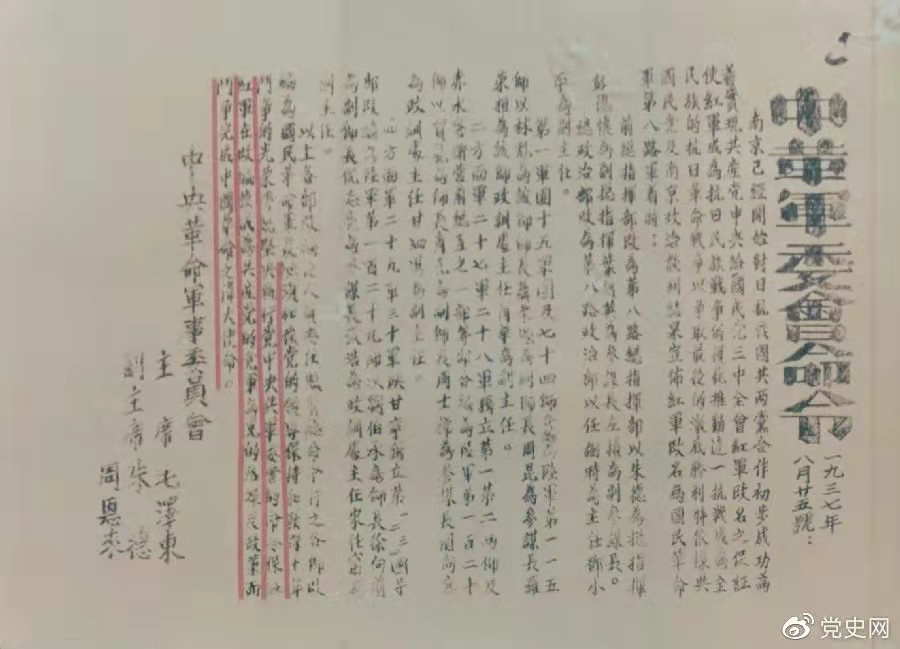 中革軍委會命令
一九三七年
八月廿五號：
南京已經開始對日抗戰國共兩黨合作初步成功為
着實現共產党中央給國民党三中全會紅軍改名之保証
使紅軍成為抗日民族戰爭的模範推動這一抗戰成為全
民族的抗日革命戰爭以爭取最後的澈底勝利特依據與
國民党及南京政府談判結果宣佈紅軍改名為國民革命
軍第八路軍着明：
前敵指揮部改為第八路總指揮部以朱德為總指揮
彭德懷為副總指揮葉劍英為參謀長左權為副參謀長。
總政治部改為第八路政治部以任弼時為主任鄧小
平為副主任。
第一軍團十五軍團及七十四師改為陸軍第一一五
師以林彪為該師師長聶榮臻為副師長周昆為參謀長羅
榮桓為該師政訓處主任蕭華為副主任。
二方面軍二十七軍二十八軍獨立第一第二兩師及
赤水警衛營前總直之一部等部改為陸軍第一百二十
師以賀龍為師長蕭克為副師長周士第為參謀長關向應
為政訓處主任甘泗淇為副主任。
四方面軍二十九軍三十軍陝甘寧獨立第一二三四等
師改為陸軍第一百二十九師以劉伯承為師長徐向前
為副師長倪志亮為參謀長張浩為政訓處主任宋任窮為
副主任。
以上各部改編 人員委任照 命令行之各師改
編為國民革命軍後必須加強党的領導保持和發揮十年
鬥爭的光榮傳統堅決執行党中央與軍委會的命令保証
紅軍在改編後成為共產党的党軍為党的路線及政策而
鬥爭完成中國革命之偉大使命。
中央革命軍事委員會
主席毛澤東
副主席朱德
周恩來
党史网